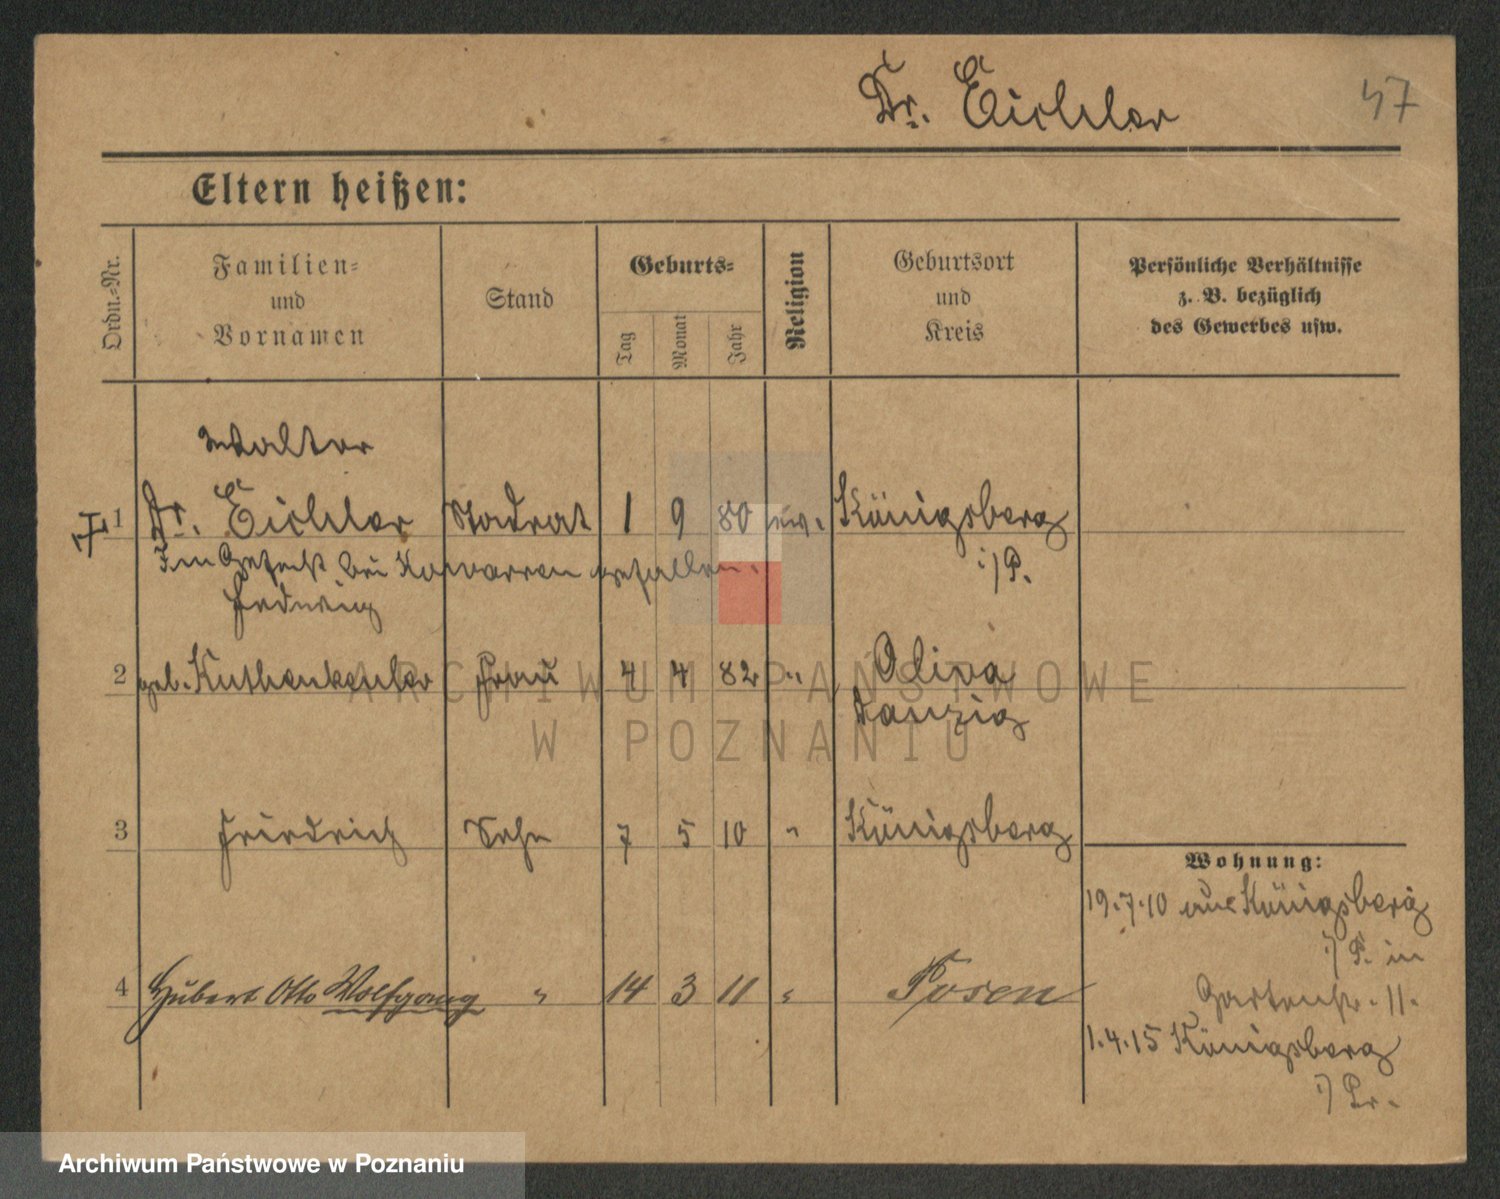 Dr. Eichler
47
Eltern heißen:
Ordn.-Nr.
Familien-
und
Vornamen
Stand
Geburts-
Tag
Monat
Jahr
Religion
Geburtsort
und
Kreis
Persönliche Verhältnisse
z. B. bezüglich
des Gewerbes usw.
Walter
1 Dr. Eichler Stadtrat 1 9 80 ev. Königsberg
Im Gefecht bei gefallen. i/P.
Hedwig
2 geb. Frau 4 4 82 " Oliva
Danzig
3 Friedrich Sohn 7 5 10 " Königsberg
Wohnung:
19.7.10 aus Königsberg
i/P. in
4 Hubert Otto Wolfgang " 14 3 11 " Posen
Gartenstr. 11.
1.4.15 Königsberg
i/Pr.
ARCHIWUM PAŃSTWOWE
W POZNANIU
Archiwum Państwowe w Poznaniu